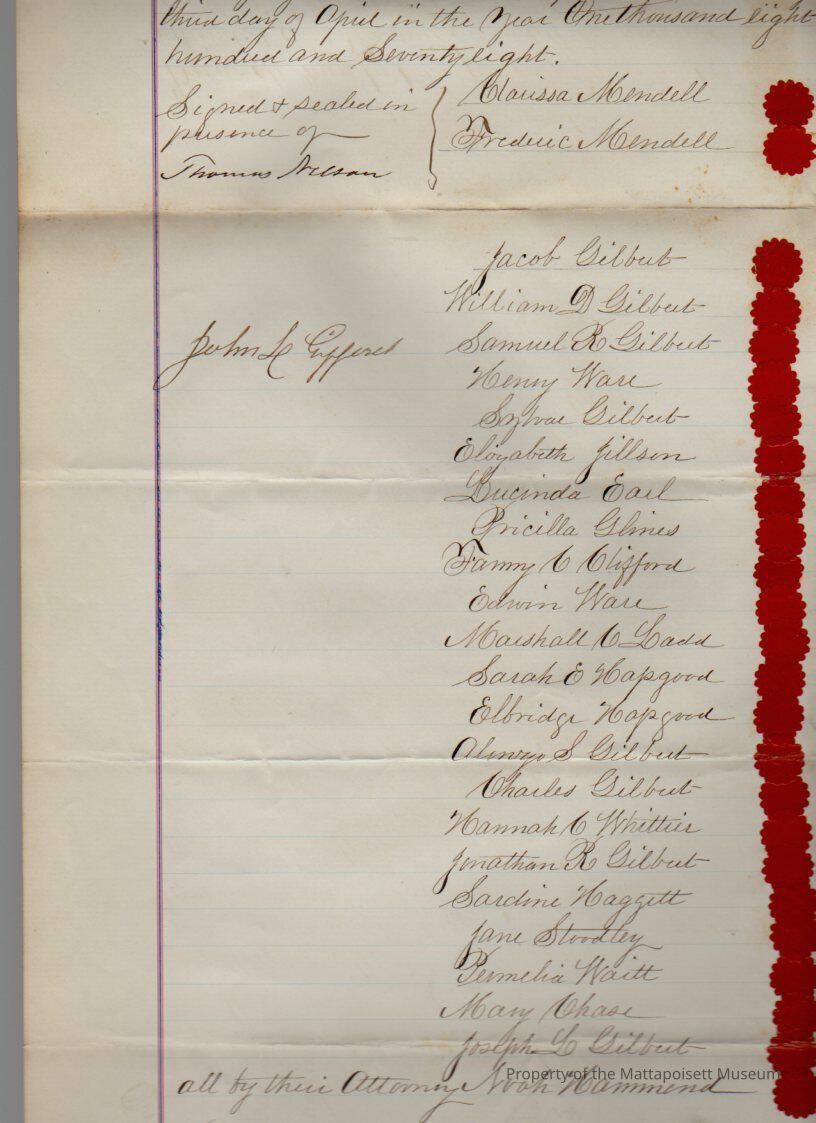 third day of April in the Year One thousand eight
hundred and Seventy eight.
Signed & sealed in
presence of
Thomas Nelson
Clarissa Mendell
Frederic Mendell
Jacob Gilbert
William D Gilbert
John L Gifford
Samuel R Gilbert
Henry Ware
Sylvae Gilbert
Elizabeth Jillson
Lucinda Earl
Pricilla Glines
Fanny C Clifford
Edwin Ware
Marshall C Ladd
Sarah E Hapgood
Elbridge Hapgood
Alonzo S Gilbert
Charles Gilbert
Hannah C Whittier
Jonathan R Gilbert
Sardine Haggett
Jane Stoodley
Permelia Waitt
Mary Chase
Joseph L Gilbert
all by their Attorney Noah Hammond
Property of the Mattapoisett Museum